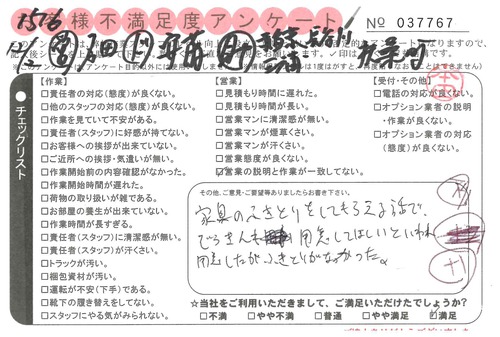 1516
お客様不満足度アンケート
No 037767
チェックリスト
【作業】
□責任者の対応(態度)が良くない。
□他のスタッフの対応(態度)が良くない。
□作業を見ていて不安がある。
□責任者(スタッフ)に好感が持てない。
□お客様への挨拶が出来ていない。
□ご近所への挨拶・気遣いが無い。
□作業開始前の内容確認がなかった。
□作業開始時間が遅れた。
□荷物の取り扱いが雑である。
□お部屋の養生が出来ていない。
□作業時間が長すぎる。
□責任者(スタッフ)に清潔感が無い。
□責任者(スタッフ)が汗くさい。
□トラックが汚い。
□梱包資材が汚い。
□運転が不安(下手)である。
□靴下の履き替えをしてない。
□スタッフにやる気がみられない。
【営業】
□見積もり時間に遅れた。
□見積もり時間が長い。
□営業マンに清潔感が無い。
□営業マンが煙草くさい。
□営業マンが汗くさい。
□営業態度が良くない。
☑営業の説明と作業が一致してない。
【受付・その他】
□電話の対応が良くない。
□オプション業者の説明
・作業が良くない。
□オプション業者の対応
(態度)が良くない。
その他、ご意見・ご要望等ありましたらお書き下さい。
家具のふきとりをしてもらえる話で、
ぞうきんも用意してほしいといわれ
用意したがふきとりがなかった。
☆当社をご利用いただきまして、ご満足いただけたでしょうか?
□不満 □やや不満 □普通 □やや満足 ☑満足